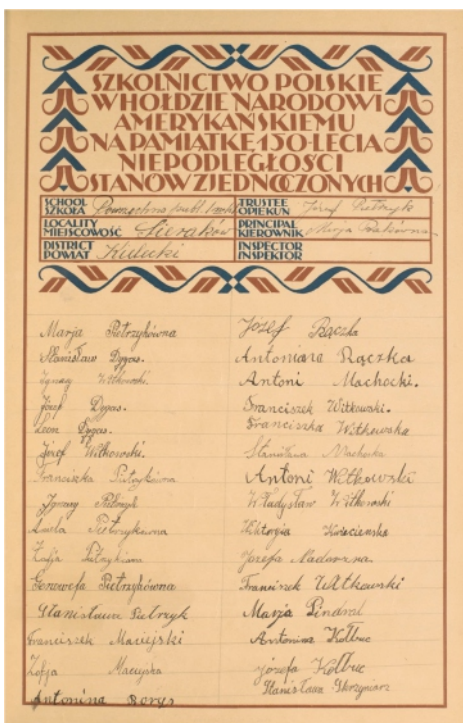 SZKOLNICTWO POLSKIE
W HOŁDZIE NARODOWI
AMERYKAŃSKIEMU
NA PAMIĄTKĘ 150-LECIA
NIEPODLEGŁOŚCI
STANÓW ZJEDNOCZONYCH
SCHOOL
SZKOŁA Powszechna publ. 1 kl.
TRUSTEE
OPIEKUN Józef Pietrzyk
LOCALITY
MIEJSCOWOŚĆ Sieraków
PRINCIPAL
KIEROWNIK
DISTRICT
POWIAT Kielecki
INSPECTOR
INSPEKTOR
Marja Pietrzykówna
Stanisław Dygas.
Ignacy Witkowski.
Józef Dygas.
Leon Dygas.
Józef Witkowski.
Franciszka Pietrzykówna
Ignacy Pietrzyk
Aniela Pietrzykówna
Zofja
Genowefa Pietrzykówna
Stanisława Pietrzyk
Franciszek Maciejski
Zofja Maciejska
Antonina Borys
Józef Rączka
Antonina Rączka
Antoni Machocki.
Franciszek Witkowski.
Franciszka Witkowska
Stanisława Machocka
Antoni Witkowski
Władysław Witkowski
Wiktorja Kwiecienska
Józefa Madarzna
Franciszek Witkowski
Marja Pindral
Antonina Kołbuc
józefa Kołbuc
Stanisława Skrzyniarz